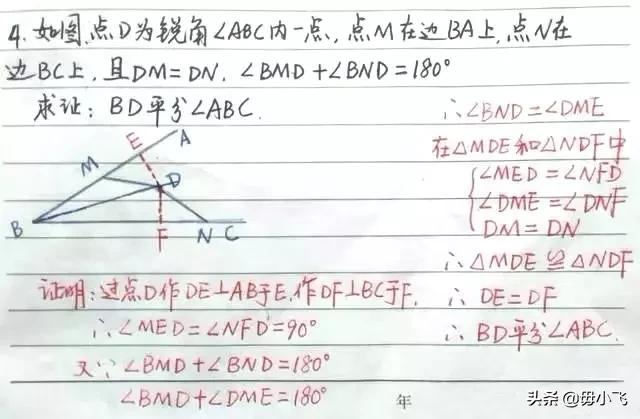 4. 如图,点D为锐角∠ABC内一点,点M在边BA上,点N在
边BC上,且DM=DN,∠BMD+∠BND=180°
求证:BD平分∠ABC.
A
E
M
D
B
F
N
C
证明:过点D作DE⊥AB于E,作DF⊥BC于F.
∴∠MED=∠NFD=90°
又∵∠BMD+∠BND=180°
∠BMD+∠DME=180°
∴∠BND=∠DME
在△MDE和△NDF中
∠MED=∠NFD
∠DME=∠DNF
DM=DN
∴△MDE≌△NDF
∴DE=DF
∴BD平分∠ABC.
年
头条@毋小飞